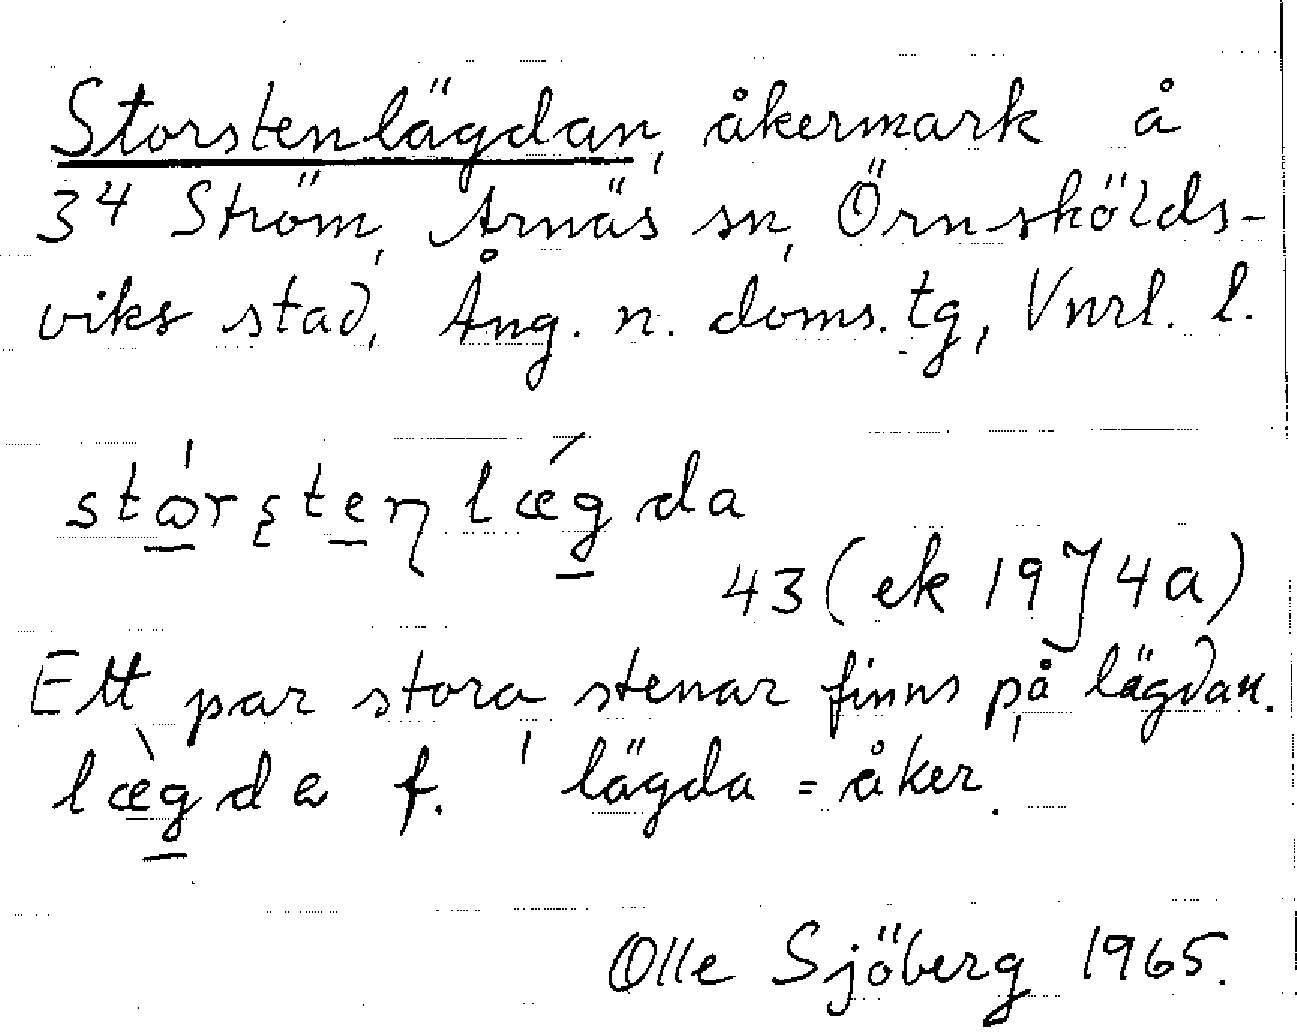 Storstenlägdan, åkermark å
34 Ström, Arnäs sn, Örnskölds-
viks stad, Ång. n. doms. tg, Vnrl. l.
stώ̲rʂte̲ɳlǽg̲da
43 (ek 19J4a)
Ett par stora stenar finns på lägdan.
læ̀g̲da f. 'lägda = åker.
Olle Sjöberg 1965.